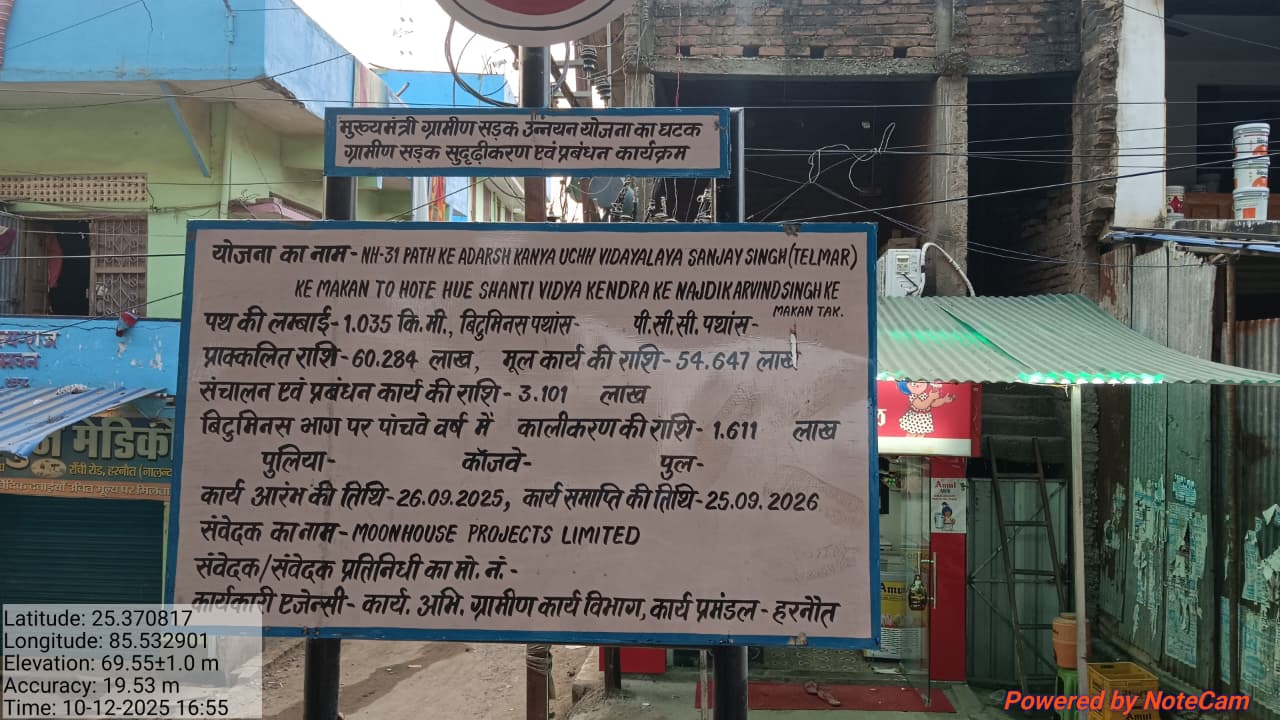 मुख्यमंत्री ग्रामीण सड़क उन्नयन योजना का घटक
ग्रामीण सड़क सुदृढ़ीकरण एवं प्रबंधन कार्यक्रम
योजना का नाम - NH-31 PATH KE ADARSH KANYA UCHH VIDAYALAYA SANJAY SINGH (TELMAR)
KE MAKAN TO HOTE HUE SHANTI VIDYA KENDRA KE NAJDIK ARVIND SINGH KE
MAKAN TAK.
पथ की लम्बाई - 1.035 कि.मी., बिटुमिनस पथांस- पी.सी.सी. पथांस-
प्राक्कलित राशि - 60.284 लाख, मूल कार्य की राशि - 54.647 लाख
संचालन एवं प्रबंधन कार्य की राशि - 3.101 लाख
बिटुमिनस भाग पर पांचवे वर्ष में कालीकरण की राशि - 1.611 लाख
पुलिया- कॉजवे- पुल-
कार्य आरंभ की तिथि - 26.09.2025, कार्य समाप्ति की तिथि - 25.09.2026
संवेदक का नाम - MOONHOUSE PROJECTS LIMITED
संवेदक/संवेदक प्रतिनिधी का मो. नं.-
कार्यकारी एजेन्सी - कार्य. अभि. ग्रामीण कार्य विभाग, कार्य प्रमंडल - हरनौत
मेडिकल
राँची रोड, हरनौत (नालन्दा)
Amul
Latitude: 25.370817
Longitude: 85.532901
Elevation: 69.55±1.0 m
Accuracy: 19.53 m
Time: 10-12-2025 16:55
Powered by NoteCam